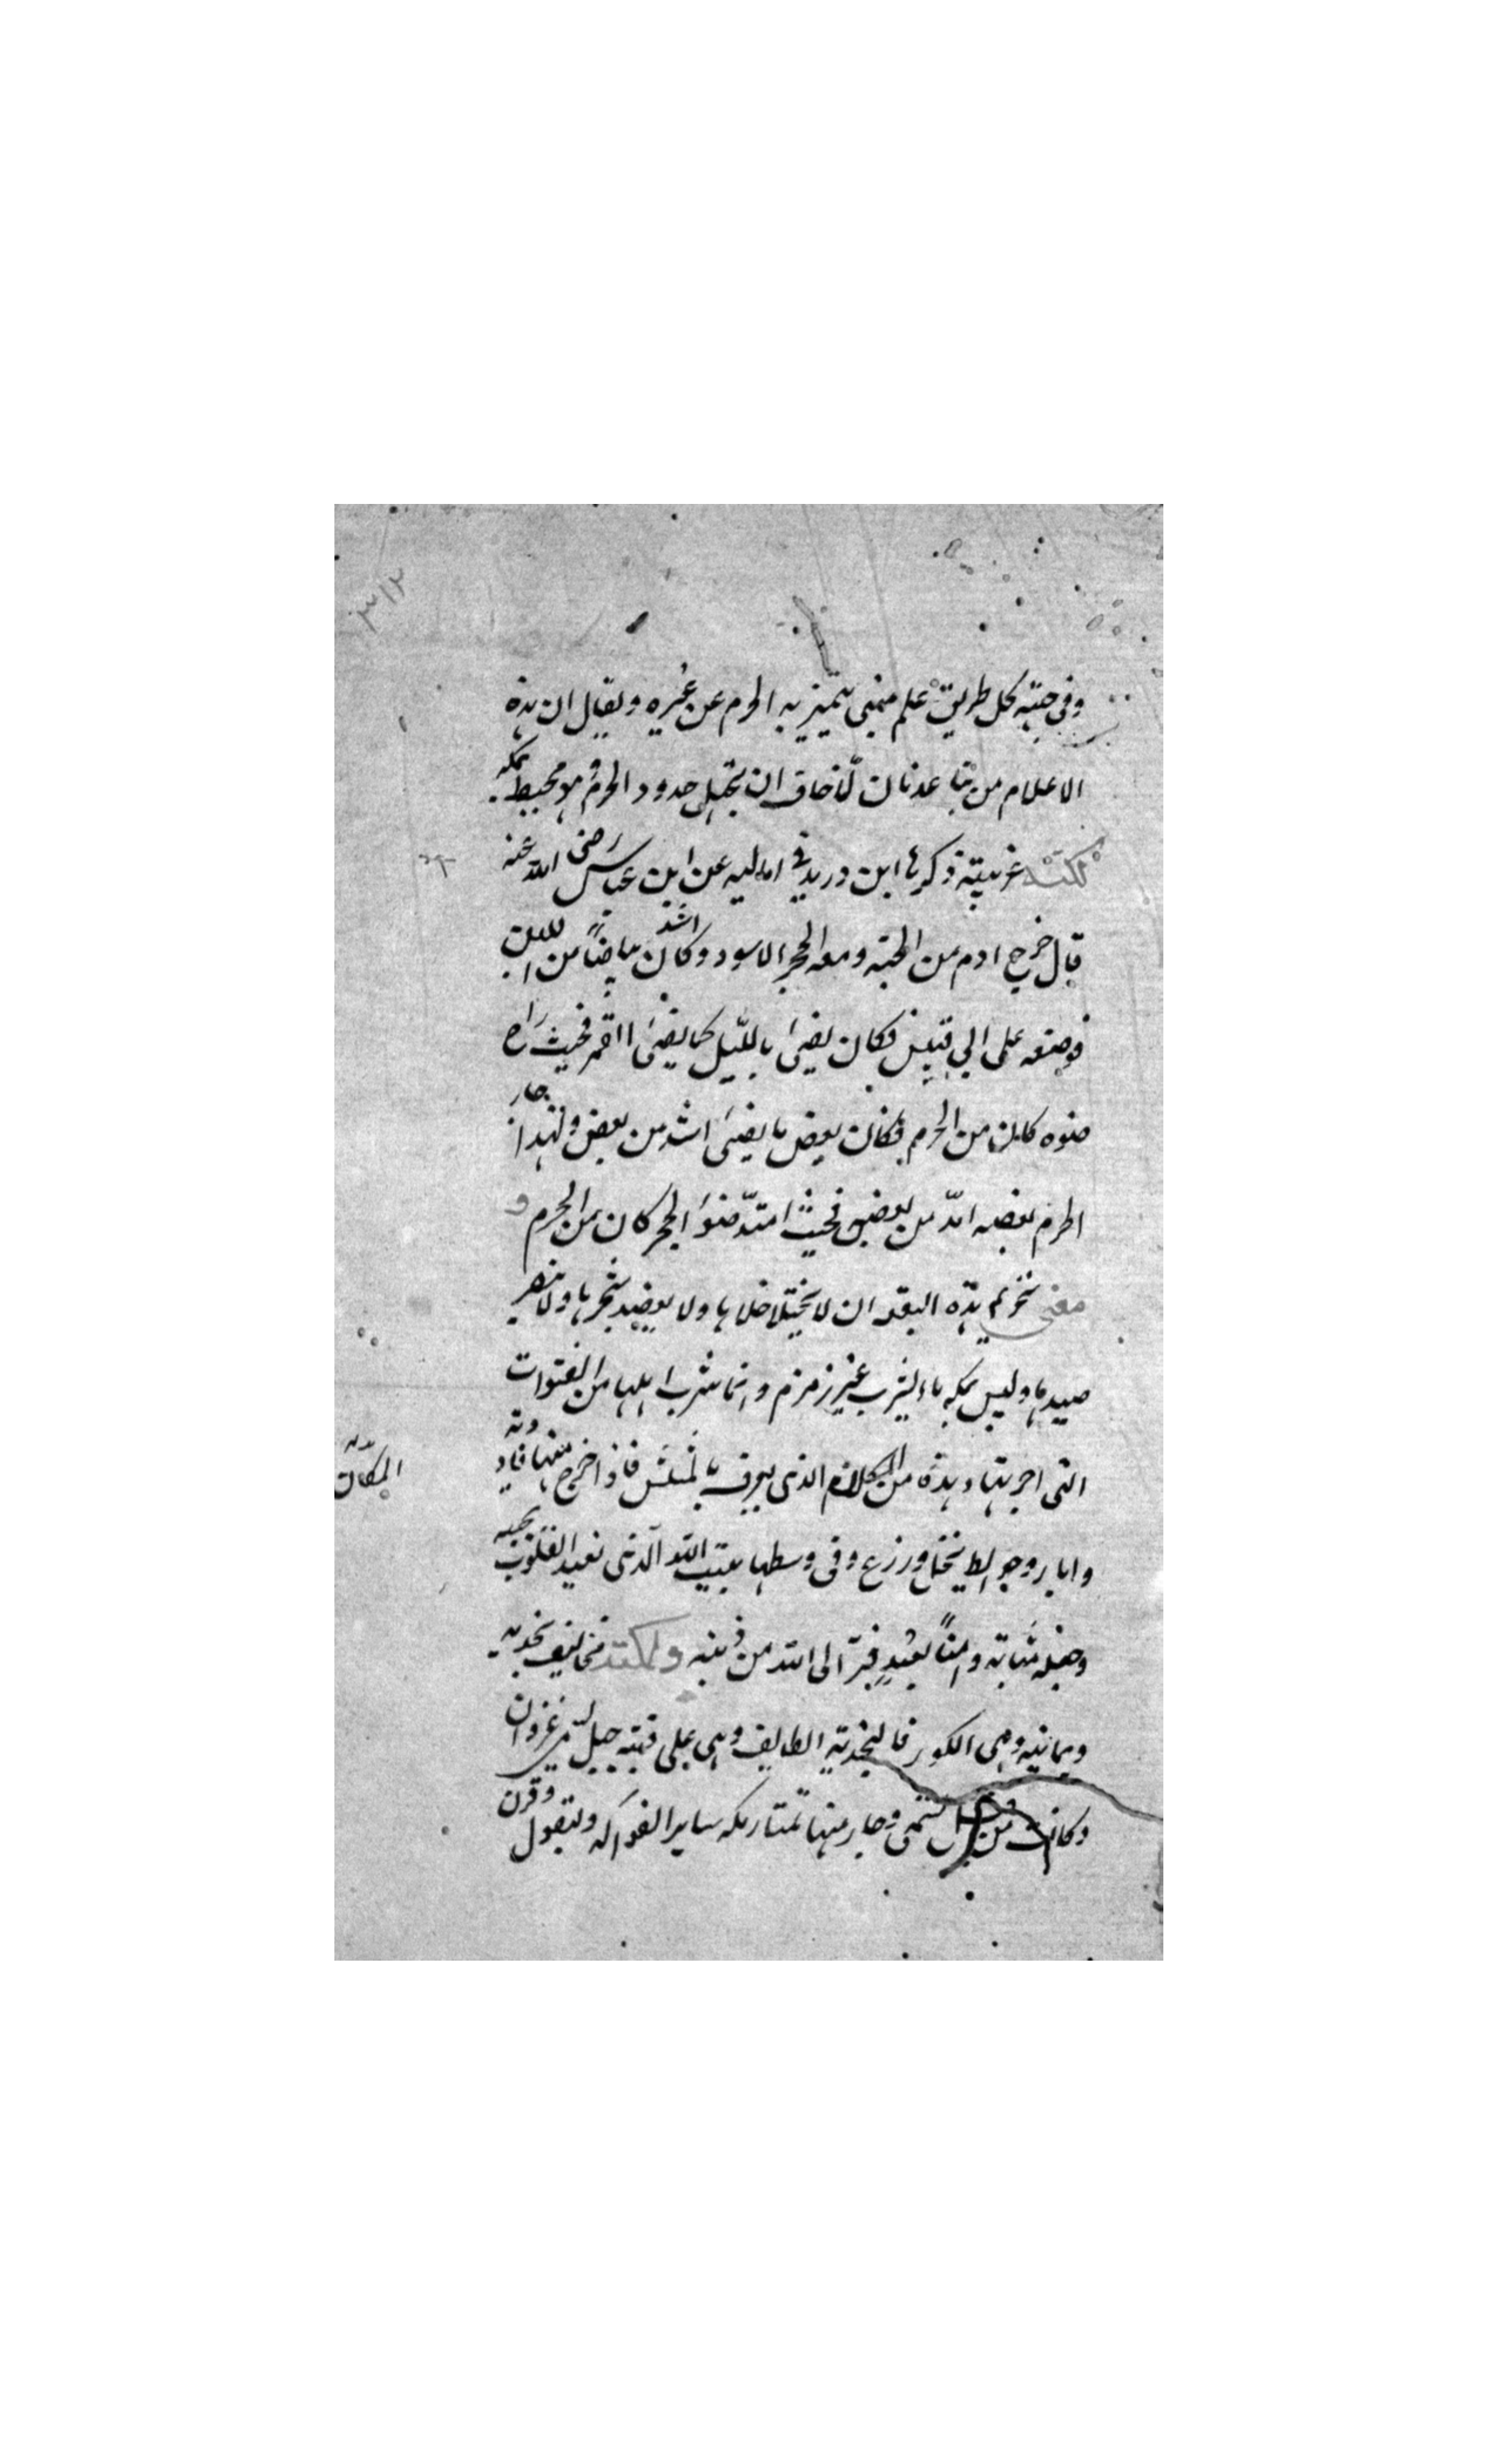 وفى جنبه كل طريق علم مبنى يتميز به الحرم عن غيره ويقال ان هذه
الاعلام من بنا عدنان لما خاف ان يجهل حدود الحرم وهو محيط بمكه
نكتة غريبة ذكرها ابن دريد فى اماليه عن ابن عباس رضى الله عنه
قال خرج ادم من الجنه ومعه الحجر الاسود وكان اشد بياضاً من اللبن
فوضعه على ابى قبيس فكان يضئ بالليل كما يضئ القمر فحيث راح
ضوه كان من الحرم فكان بعض ما يضئ اشد من بعض ولهذا جار
الحرم بعضه امد من بعض فحيث امتد ضوا الحجر كان من الحرم و
معنى تحريم هذه البقعه ان لا يختلا خلاها ولا يعضد شجرها ولا ينفر
صيدها وليس بمكه ماء يشرب غير زمزم وانما شرب اهلها من القنوات
التى اجريتها وهذه من الكلام الذى يعرف فاذا خرج منها فاودية
المكان
وابار وحوايط نخل وزرع وفى وسطها بيت الله الذى تعبد القلوب بحبه
وجعله مثابة وامناً لعبد فر الى الله من ذنبه ولمكة مخاليف نجديه
ويمانيه وهى الكور فالنجدية الطايف وهى على قنة جبل يسمى غزوان
وكانت من تسمى وجار منها تمتار مكه ساير الفواكه والبقول وقرن